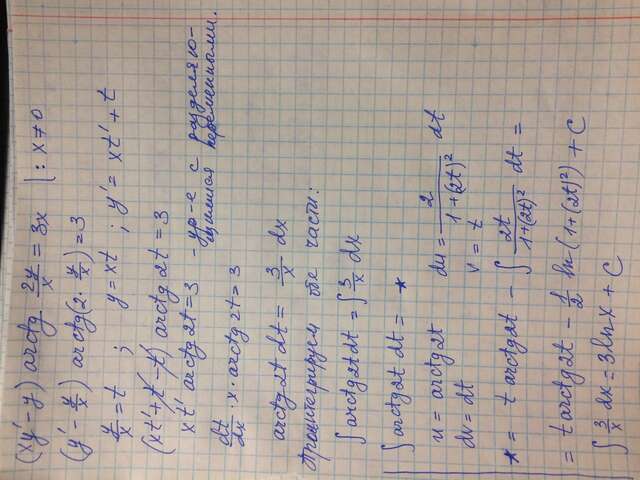 (xy' - y) arctg 2y/x = 3x | : x ≠ 0
(y' - y/x) arctg(2 · y/x) = 3
y/x = t ; y = xt ; y' = xt' + t
(xt' + t - t) arctg 2t = 3
xt' arctg 2t = 3 - ур-е с разделяю-
щимися переменными.
dt/dx · x · arctg 2t = 3
arctg 2t dt = 3/x dx
Проинтегрируем обе части:
∫ arctg 2t dt = ∫ 3/x dx
∫ arctg 2t dt = *
u = arctg 2t du = 2/(1+(2t)²) dt
dv = dt v = t
* = t arctg 2t - ∫ 2t/(1+(2t)²) dt =
= t arctg 2t - 1/2 ln(1+(2t)²) + C
∫ 3/x dx = 3 ln x + C